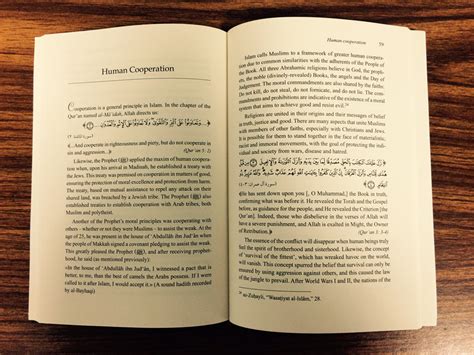 Human Cooperation
Cooperation is a general principle in Islam. In the chapter of the
Qur'an named al-Mā'idah, Allah directs us:
﴿وَتَعَاوَنُوا عَلَى الْبِرِّ وَالتَّقْوَىٰ وَلَا تَعَاوَنُوا عَلَى الْإِثْمِ وَالْعُدْوَانِ﴾
﴾And cooperate in righteousness and piety, but do not cooperate in
sin and aggression.﴿ (Qur'an 5: 2)
Likewise, the Prophet (ﷺ) applied the maxim of human coopera-
tion when, upon his arrival in Madinah, he established a treaty with the
Jews. This treaty was premised on cooperation in matters of goodness,
ensuring the protection of moral excellence and protection from harm.
The treaty, based on mutual assistance to repel any attack on their
shared land, was breached by a Jewish tribe. The Prophet's treaties
were also wide enough to cooperate with Arab tribes, both
Muslim and polytheist.
Another of the Prophet's moral principles was cooperating with
others
to assist the weak. At the
age of 25, he was present at the house of 'Abdullāh ibn Jud'ān when the
people of Makkah signed a covenant pledging to assist the weak.
This greatly pleased the Prophet (ﷺ), and after receiving prophet-
hood, he said:
«In the house of 'Abdullāh ibn Jud'ān, I witnessed a pact that is
dearer, to me, than the best of camels the Arabs possess. If I were
called to it after Islam, I would accept it.» (A sound hadith recorded
by al-Bayhaqi)
Human cooperation 59
Islam calls Muslims to a framework of greater human coopera-
tion due to common similarities with the adherents of the People of
the Book. All three Abrahamic religions believe in God, the proph-
ets, the noble (divinely-revealed) Books, the angels and the Day of
Judgement. The moral commandments are also shared by the faiths:
Do not kill, do not steal, do not fornicate, and do not lie. The com-
mandments and prohibitions are indicative of the existence of a moral
system that aims to achieve good and resist evil.
Religions are united in their origins and their messages of belief
in truth, justice and good. There are many aspects that unite Muslim
with members of other faiths, especially with Christians and Jews.
It is possible to cooperate to face the torrent of materialism,
racist and immoral movements, with the goal of protecting the indi-
vidual and society from wars, disease and hatred.
﴿نَزَّلَ عَلَيْكَ الْكِتَابَ بِالْحَقِّ مُصَدِّقًا لِّمَا بَيْنَ يَدَيْهِ وَأَنزَلَ التَّوْرَاةَ وَالْإِنجِيلَ
(سورة آل عمران: ٣-٤)
﴾He has sent down upon you [, O Muhammad,] the Book in truth,
confirming what was before it. He revealed the Torah and the Gospel
before, as guidance for the people, and He revealed the Criterion [the
Qur'an]. Indeed, those who disbelieve in the verses of Allah will
have a severe punishment, and Allah is exalted in Might, the Owner
of Retribution.﴿ (Qur'an 3: 3-4)
The essence of the conflict will disappear when human beings truly
feel the spirit of brotherhood and sisterhood. Likewise, the concept
of 'survival of the fittest', which has wreaked havoc on the world,
will vanish. This concept spurred the belief that survival can only be
ensured by using aggression against others, and this caused the law
of the jungle to prevail. After World Wars I and II, the nations of the
az-Zuḥaylī, "Wasaṭiyat al-Islām," 28.